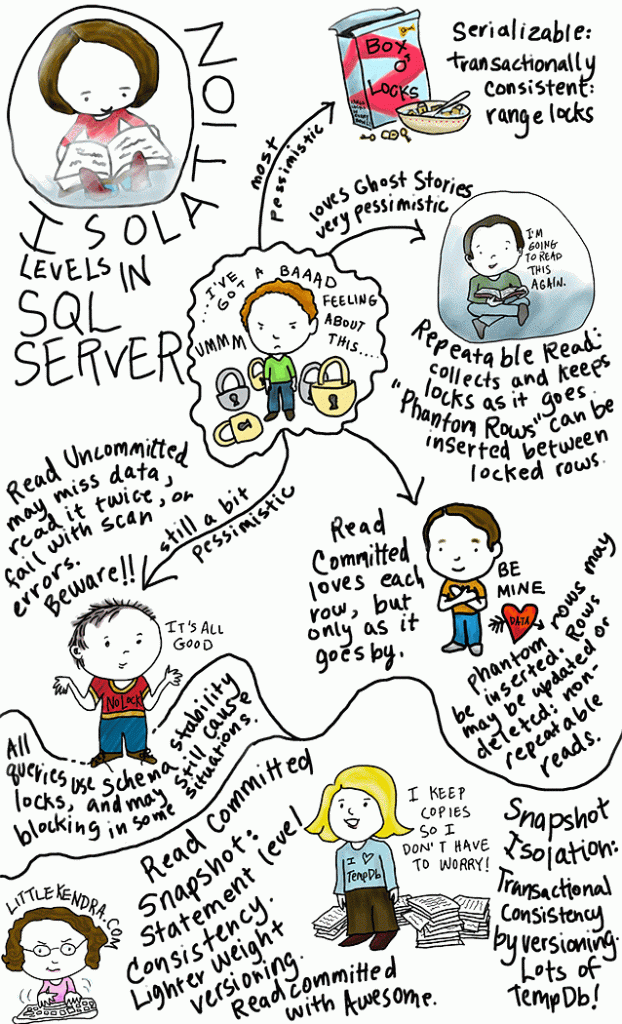 ISOLATION
LEVELS IN
SQL
SERVER
most
pessimistic
BOX
O'
LOCKS
Serializable:
transactionally
consistent:
range locks
loves Ghost Stories
very pessimistic
I'M
GOING
TO READ
THIS
AGAIN.
Repeatable Read:
collects and keeps
locks as it goes.
"Phantom Rows" can be
inserted between
locked rows.
UMMM
...I'VE
GOT A BAAAD
FEELING
ABOUT
THIS....
Read Uncommitted
may miss data,
read it twice, or
fail with scan
errors.
Beware!!
still a bit
pessimistic
IT'S ALL
GOOD
NoLock
All
queries use schema stability
locks, and may still cause
blocking in some situations.
Read
Committed
loves each
row, but
only as it
goes by.
BE
MINE
DATA
Phantom rows may
be inserted. Rows
may be updated or
deleted: non-
repeatable
reads.
Read Committed
Snapshot:
Statement level
Consistency.
Lighter weight
versioning.
Read committed
with Awesome.
I KEEP
COPIES
SO I
DON'T HAVE
TO WORRY!
I ♥
TempDb
Snapshot
Isolation:
Transactional
Consistency
by versioning.
Lots of
TempDb!
LITTLEKENDRA.COM